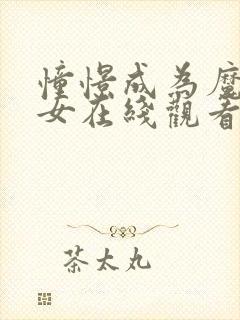 憧憬成為魔
女在綫觀看
茶太丸